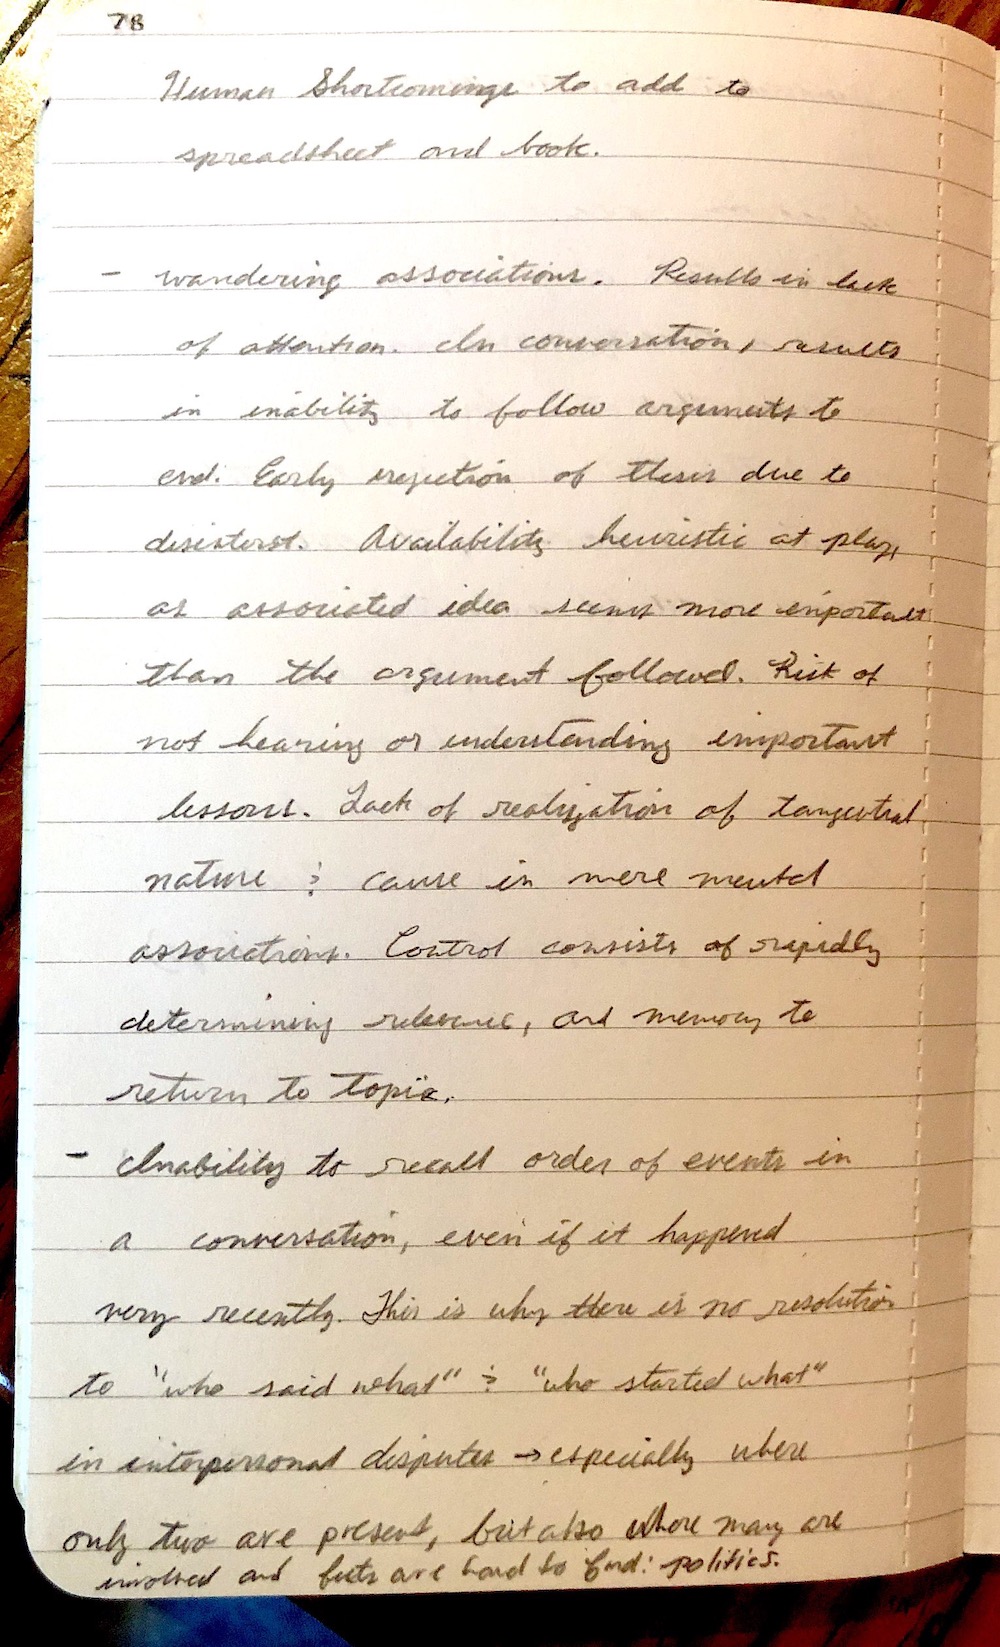 78
Human Shortcomings to add to
spreadsheet and book.
- wandering associations. Results in lack
of attention. In conversation, results
in inability to follow arguments to
end. Early rejection of thesis due to
disinterest. Availability heuristic at play,
as associated idea seems more important
than the argument followed. Risk of
not hearing or understanding important
lessons. Lack of realization of tangential
nature & cause in mere mental
associations. Control consists of rapidly
determining relevance, and memory to
return to topic.
- Inability to recall order of events in
a conversation, even if it happened
very recently. This is why there is no resolution
to "who said what" & "who started what"
in interpersonal disputes → especially where
only two are present, but also where many are
involved and facts are hard to find: politics.